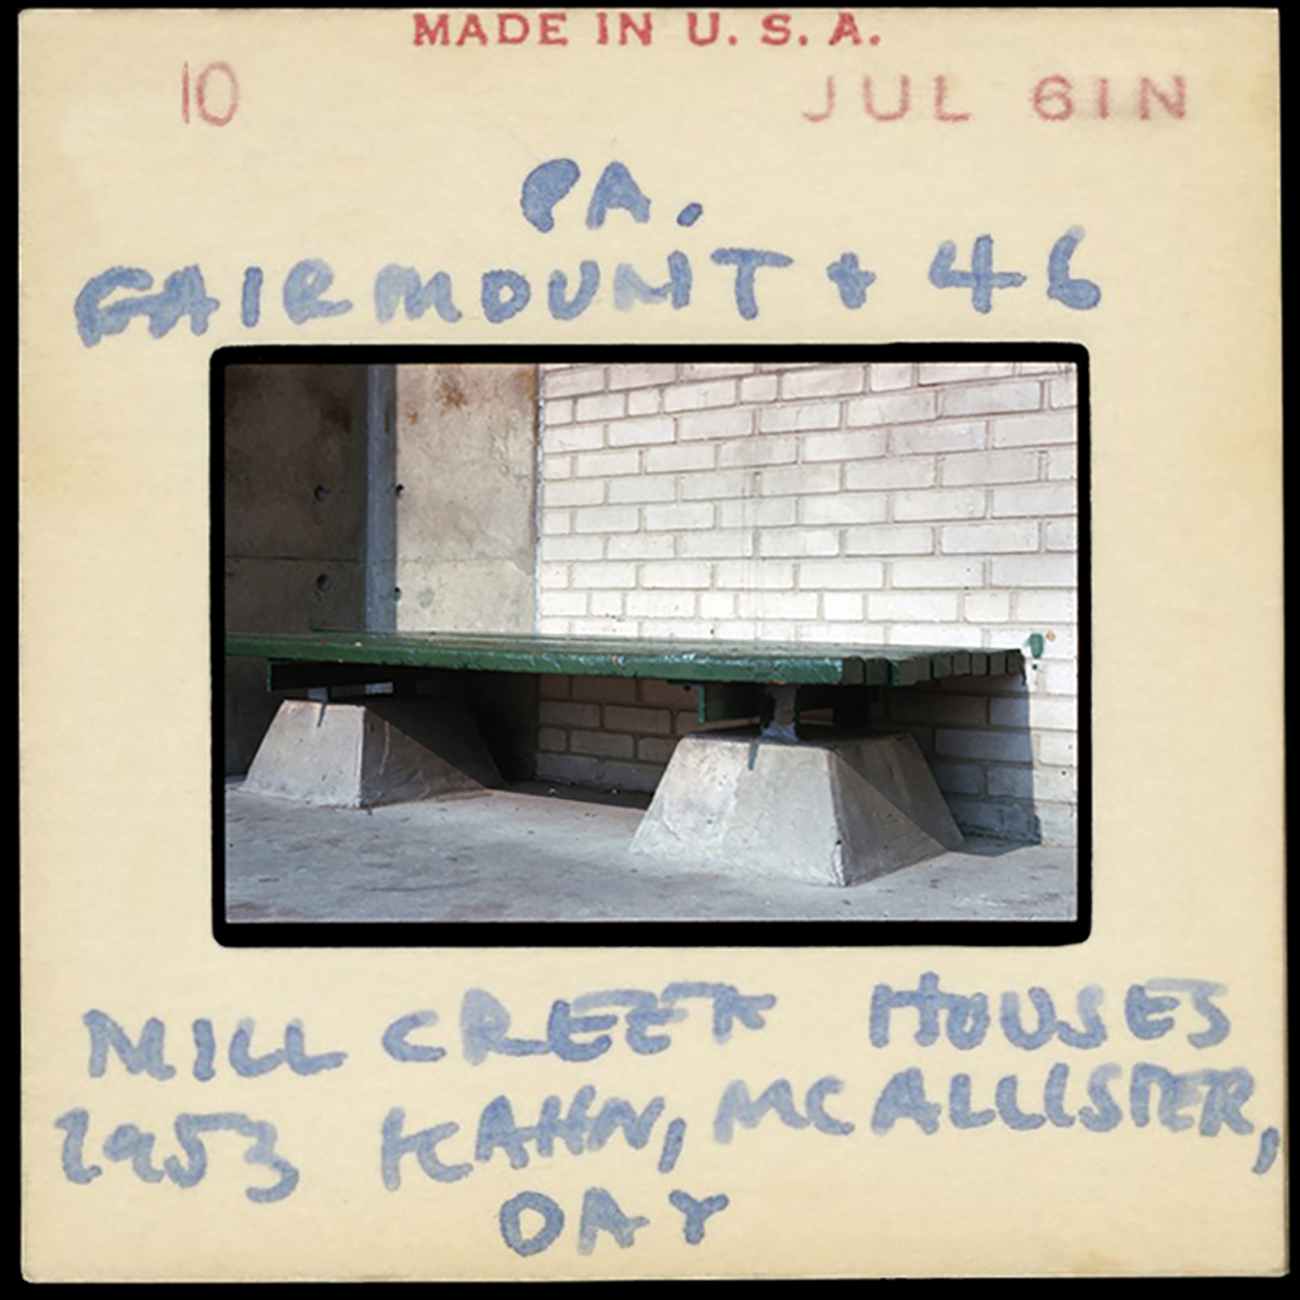 MADE IN U. S. A.
10 JUL 61N
PA.
FAIRMOUNT + 46
MILL CREEK HOUSES
1953 KAHN, MCALLISTER,
DAY